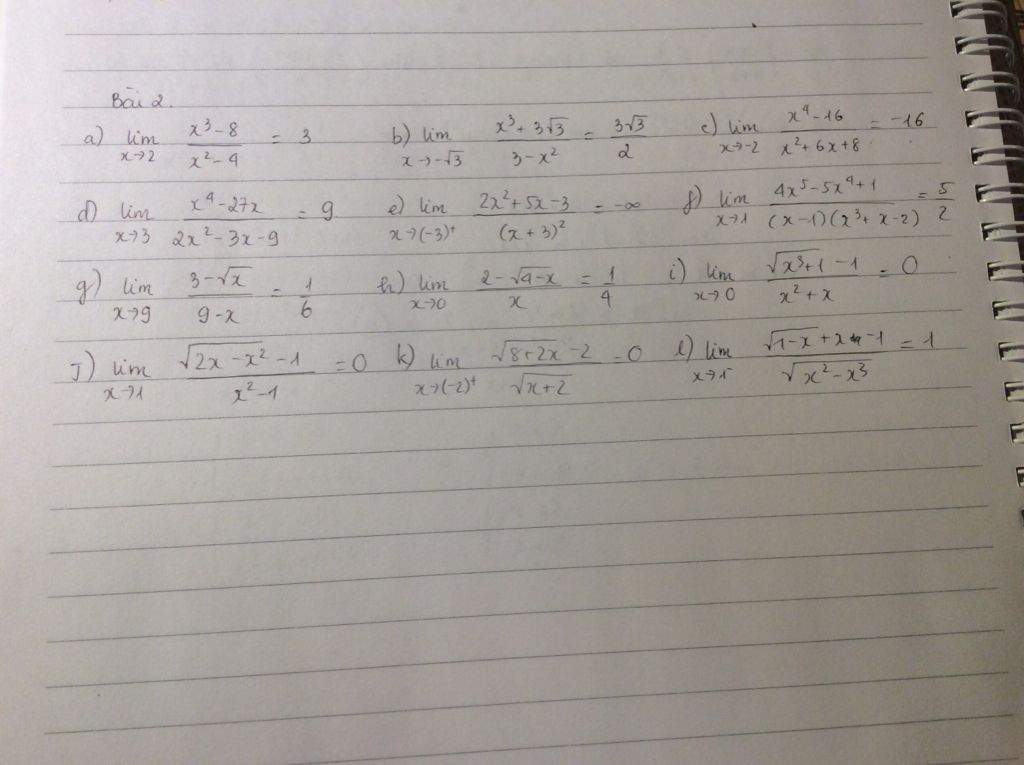 Bài 2.
a) lim x→2 (x³ - 8)/(x² - 4) = 3 b) lim x→-√3 (x³ + 3√3)/(3 - x²) = 3√3/2 c) lim x→-2 (x⁴ - 16)/(x² + 6x + 8) = -16
d) lim x→3 (x⁴ - 27x)/(2x² - 3x - 9) = 9 e) lim x→(-3)⁺ (2x² + 5x - 3)/(x + 3)² = -∞ f) lim x→1 (4x⁵ - 5x⁴ + 1)/((x - 1)(x³ + x - 2)) = 5/2
g) lim x→9 (3 - √x)/(9 - x) = 1/6 h) lim x→0 (2 - √(4 - x))/x = 1/4 i) lim x→0 (√(x³ + 1) - 1)/(x² + x) = 0
J) lim x→1 (√(2x - x²) - 1)/(x² - 1) = 0 k) lim x→(-2)⁺ (√(8 + 2x) - 2)/√(x + 2) = 0 l) lim x→1⁻ (√(1 - x) + x - 1)/√(x² - x³) = 1